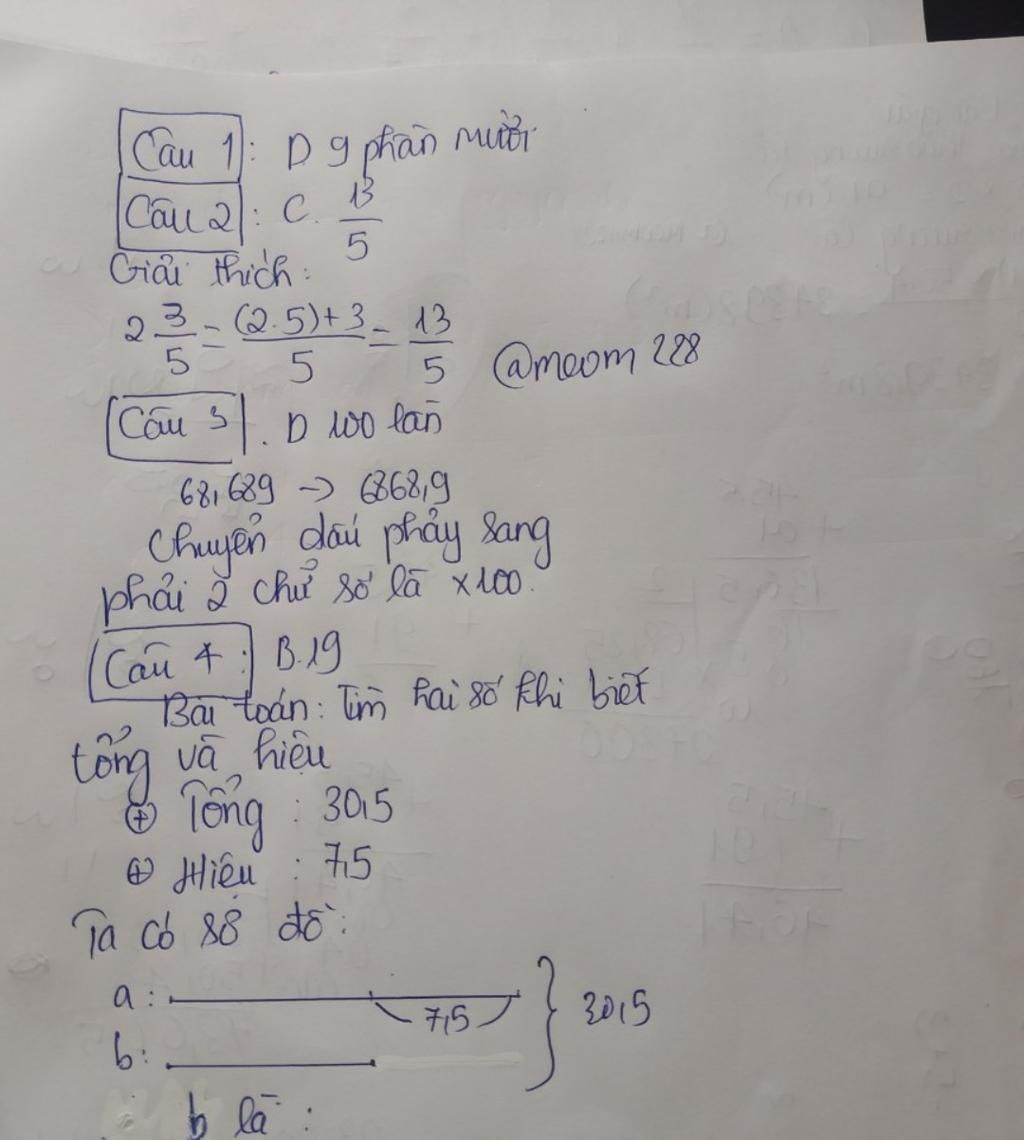 Câu 1: D 9 phần mười
Câu 2: C. 13/5
Giải thích:
2 3/5 = (2.5)+3/5 = 13/5 @meom 228
Câu 3. D 100 lần
68,689 → 6868,9
Chuyển dấu phảy sang
phải 2 chữ số là ×100.
Câu 4: B.19
Bài toán: Tìm hai số khi biết
tổng và hiệu
⊕ Tổng : 30,5
⊕ Hiệu : 7,5
Ta có sơ đồ:
a: 7,5 } 30,5
b:
b là :